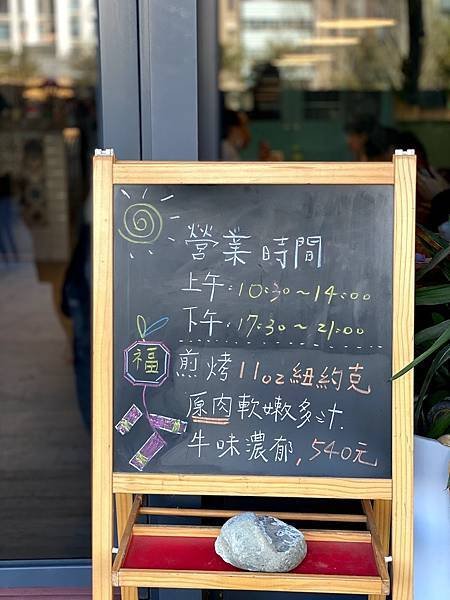 營業時間
上午:10:30~14:00
下午:17:30~21:00
福
煎烤11oz紐約克
原肉軟嫩多汁.
牛味濃郁,540元